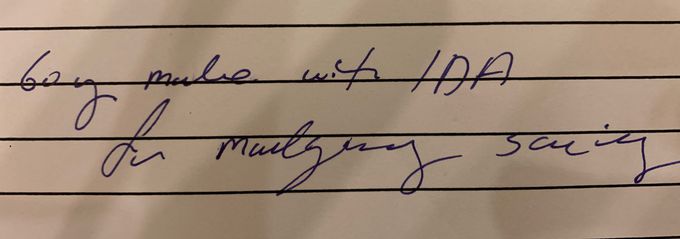 60 y male with IDA
for malignancy